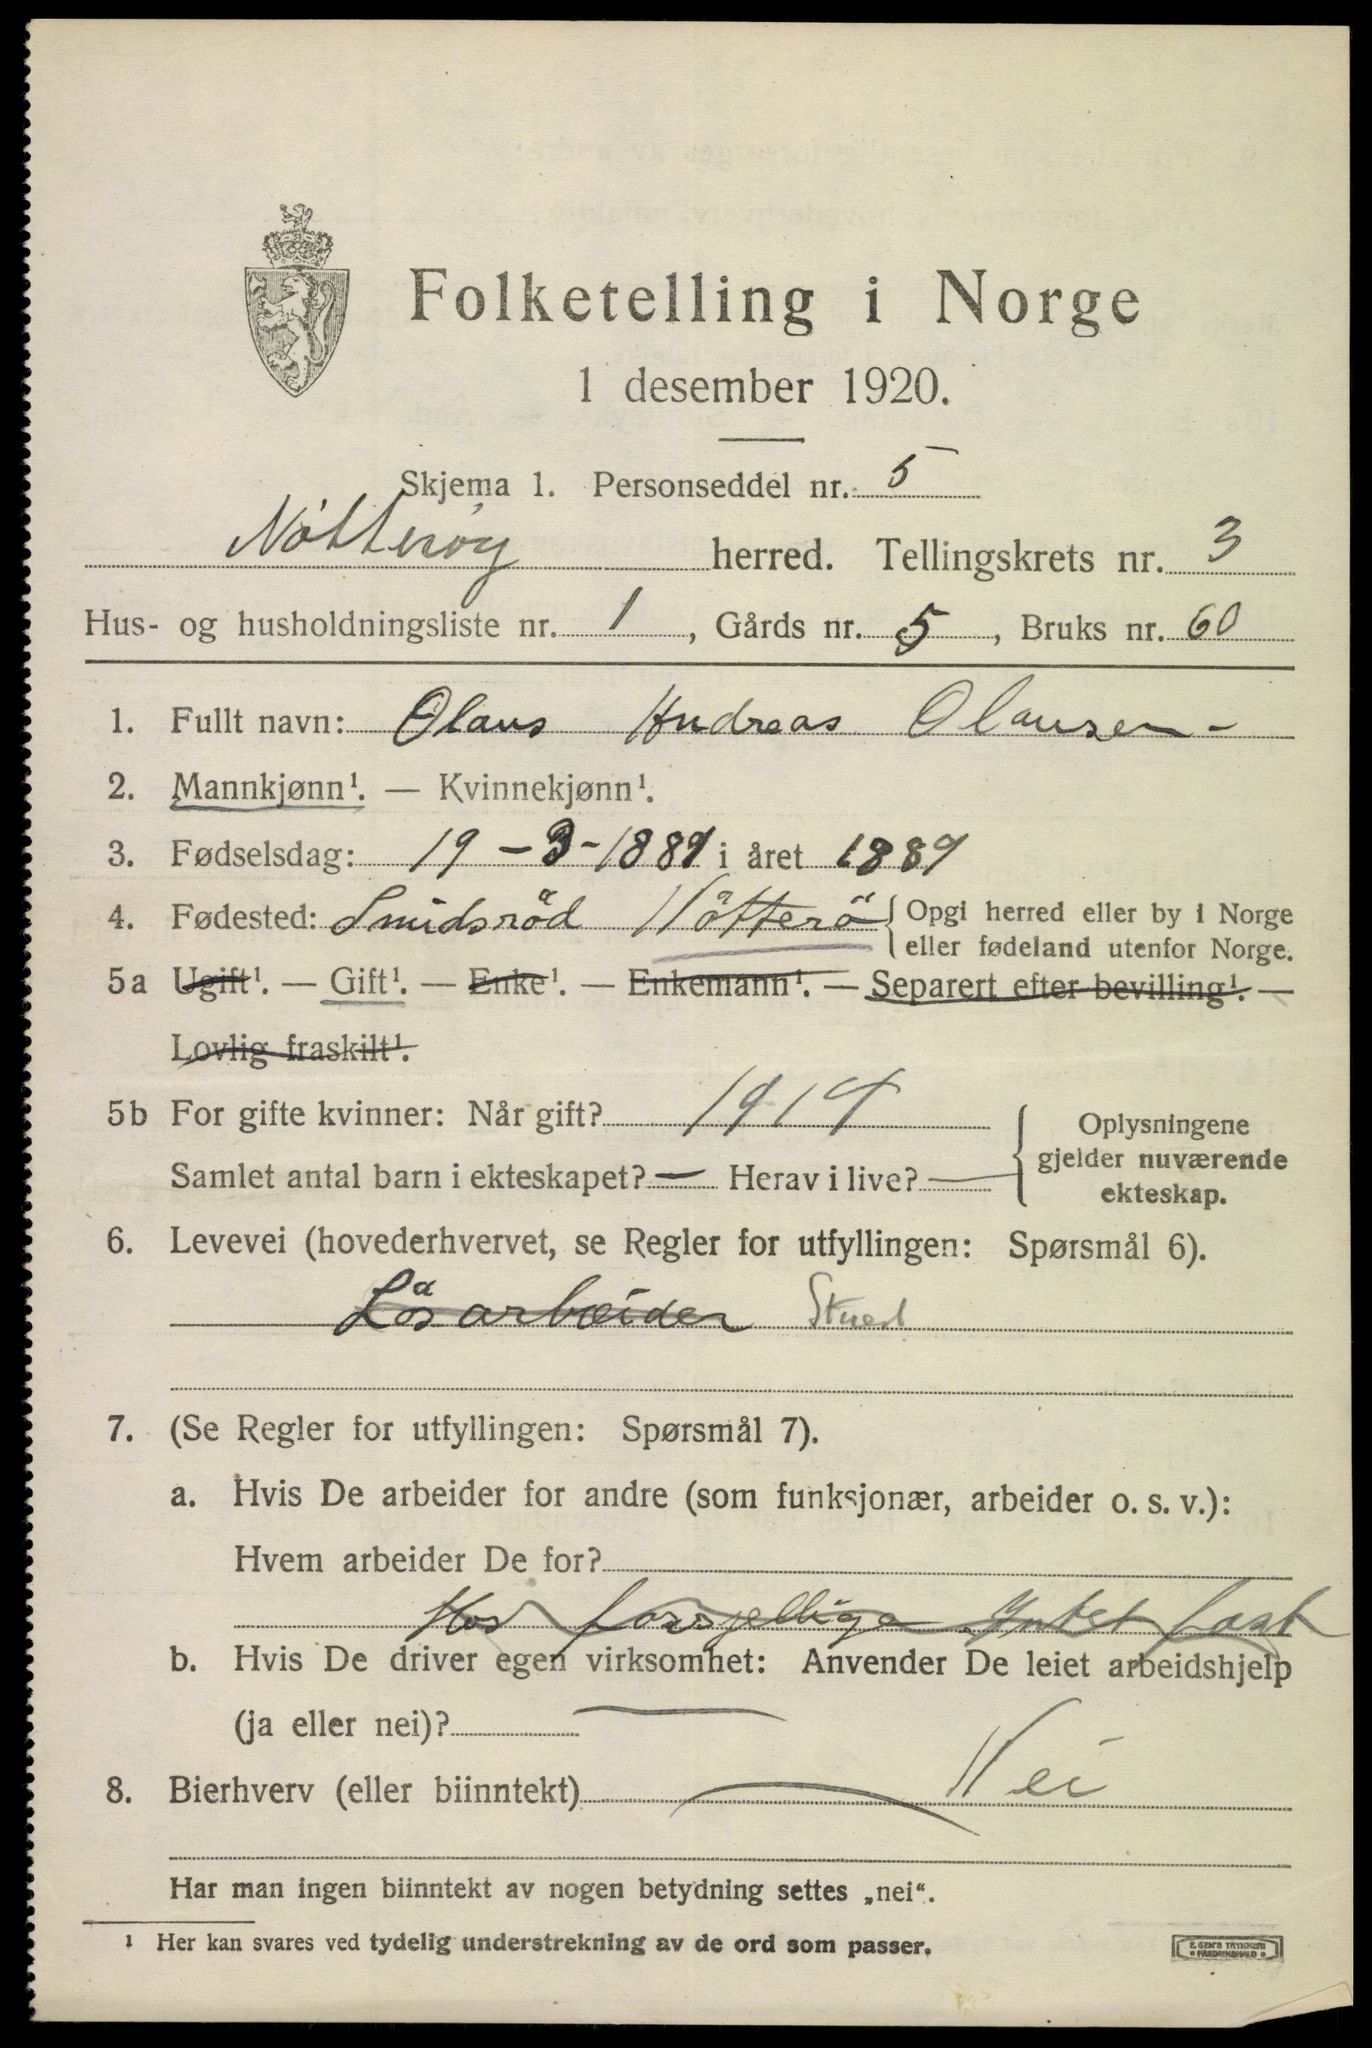 Folketelling i Norge
1 desember 1920.
Skjema 1. Personseddel nr. 5
Nötteröy herred. Tellingskrets nr. 3
Hus- og husholdningsliste nr. 1, Gårds nr. 5, Bruks nr. 60
1. Fullt navn: Olaus Andreas Olausen -
2. Mannkjønn¹. — Kvinnekjønn¹.
3. Fødselsdag: 19 - 3 - 1889 i året 1889
4. Fødested: Smidsröd Nötterö { Opgi herred eller by i Norge
eller fødeland utenfor Norge.
5a Ugift¹. — Gift¹. — Enke¹. — Enkemann¹. — Separert efter bevilling¹. —
Lovlig fraskilt¹.
5b For gifte kvinner: Når gift? 1914
Samlet antal barn i ekteskapet? — Herav i live? —
Oplysningene
gjelder nuværende
ekteskap.
6. Levevei (hovederhvervet, se Regler for utfyllingen: Spørsmål 6).
Lösarbeider
7. (Se Regler for utfyllingen: Spørsmål 7).
a. Hvis De arbeider for andre (som funksjonær, arbeider o. s. v.):
Hvem arbeider De for?
Hos forsjellige Intet fast
b. Hvis De driver egen virksomhet: Anvender De leiet arbeidshjelp
(ja eller nei)? —
8. Bierhverv (eller biinntekt) — Nei
Har man ingen biinntekt av nogen betydning settes „nei“.
¹ Her kan svares ved tydelig understrekning av de ord som passer.